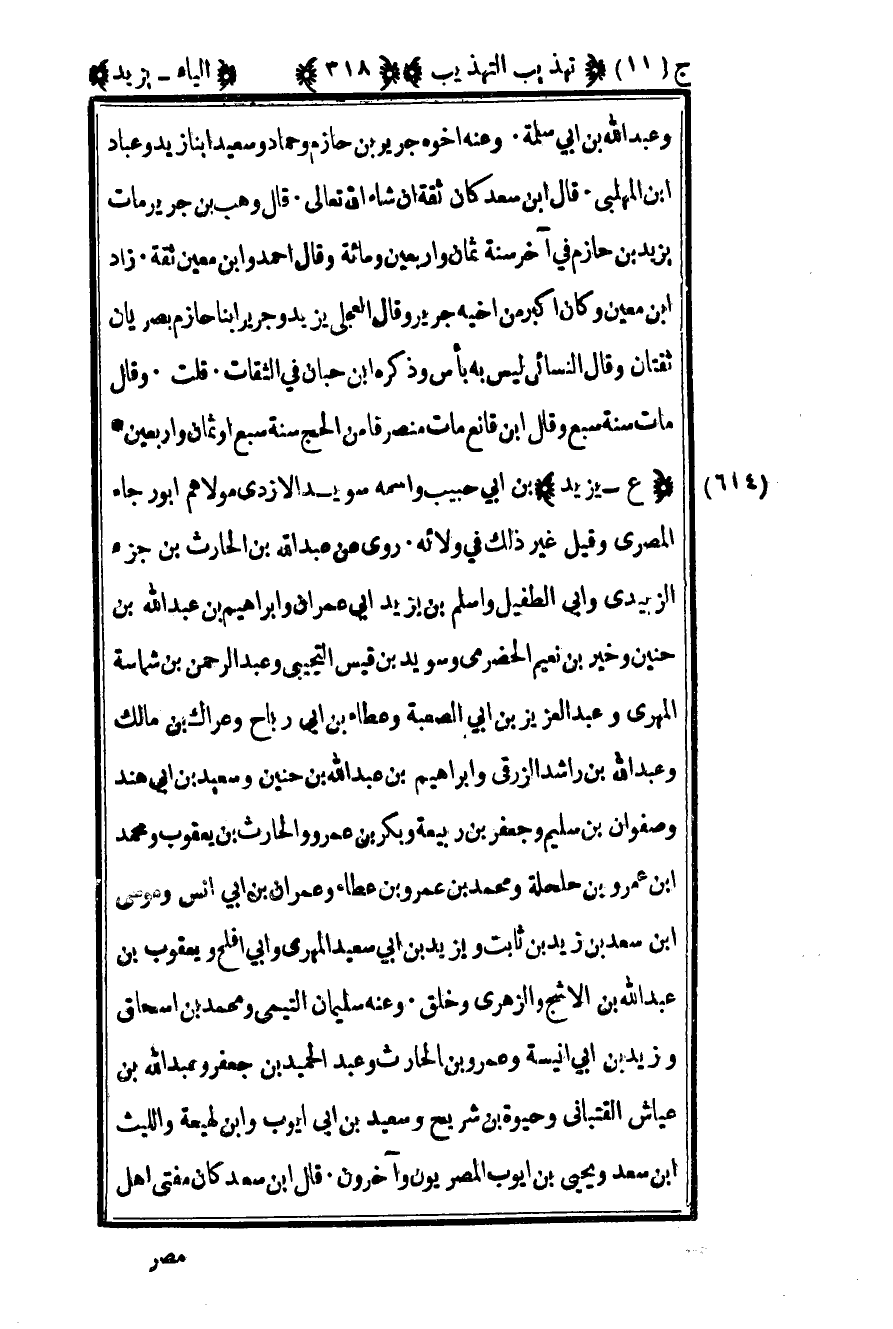 ج (١١) ﴿ تهذيب التهذيب ﴾ ﴿ ٣١٨ ﴾ ﴿ الياء ـ يزيد ﴾
وعبدالله بن ابي سلمة ٠ وعنه اخوه جرير بن حازم وحماد وسعيد ابنا زيد وعباد
ابن المهلبى ٠ قال ابن سعد كان ثقة ان شاء الله تعالى ٠ قال وهب بن جرير مات
يزيد بن حازم في آخر سنة ثمان واربعين ومائة وقال احمد وابن معين ثقة ٠ زاد
ابن معين وكان اكبر من اخيه جرير وقال العجلى يزيد وجرير ابنا حازم بصريان
ثقتان وقال النسائى ليس به بأس وذكره ابن حبان في الثقات ٠ قلت ٠ وقال
مات سنة سبع وقال ابن قانع مات منصرفا من الحج سنة سبع او ثمان واربعين *
(٦١٤) ﴿ ع ـ يزيد ﴾ بن ابي حبيب واسمه سويد الازدى مولاهم ابو رجاء
المصرى وقيل غير ذلك في ولائه ٠ روى عن عبدالله بن الحارث بن جزء
الزبيدى وابي الطفيل واسلم بن يزيد ابي عمران وابراهيم بن عبدالله بن
حنين وخير بن نعيم الحضرمى وسويد بن قيس التجيبى وعبدالرحمن بن شماسة
المهرى و عبدالعزيز بن ابي الصعبة وعطاء بن ابى رباح وعراك بن مالك
وعبدالله بن راشد الزرقى وابراهيم بن عبدالله بن حنين وسعيد بن ابى هند
وصفوان بن سليم وجعفر بن ربيعة وبكر بن عمرو والحارث بن يعقوب ومحمد
ابن عمرو بن حلحلة ومحمد بن عمرو بن عطاء وعمران بن ابي انس وموسى
ابن سعد بن زيد بن ثابت ويزيد بن ابي سعيد المهرى وابي افلح ويعقوب بن
عبدالله بن الاشج والزهرى وخلق ٠ وعنه سليمان التيمى ومحمد بن اسحاق
وزيد بن ابي انيسة وعمرو بن الحارث وعبد الحميد بن جعفر وعبدالله بن
عياش القتبانى وحيوة بن شريح وسعيد بن ابى ايوب وابن لهيعة والليث
ابن سعد ويحيى بن ايوب المصريون وآخرون ٠ قال ابن سعد كان مفتى اهل
مصر